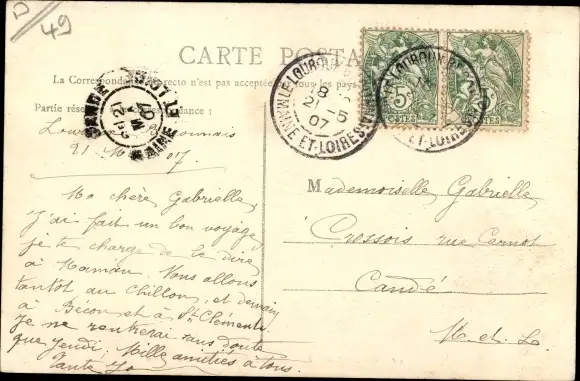 D
49
CARTE POSTA
La Correspond au recto n'est pas acceptée tous les pays
Partie rése dance :
LE LOUROUX
18
21 - 5
07
MAINE-ET-LOIRE
LE LOUROUX
ET-LOIRE
5
POSTES
CANDÉ
21
07
MAINE ET LOIRE
Lou onnais
21 M 07
Ma chère Gabrielle,
J'ai fait un bon voyage,
je te charge de le dire
à Maman. Vous allons
tantôt au Chillon, et demain
à Bécon et à St Clément.
Je ne rentrerai sans doute
que jeudi. Mille amitiés à tous.
Tante Jo
Mademoiselle Gabrielle
Cressois rue Carnot
Candé
M. et. L.